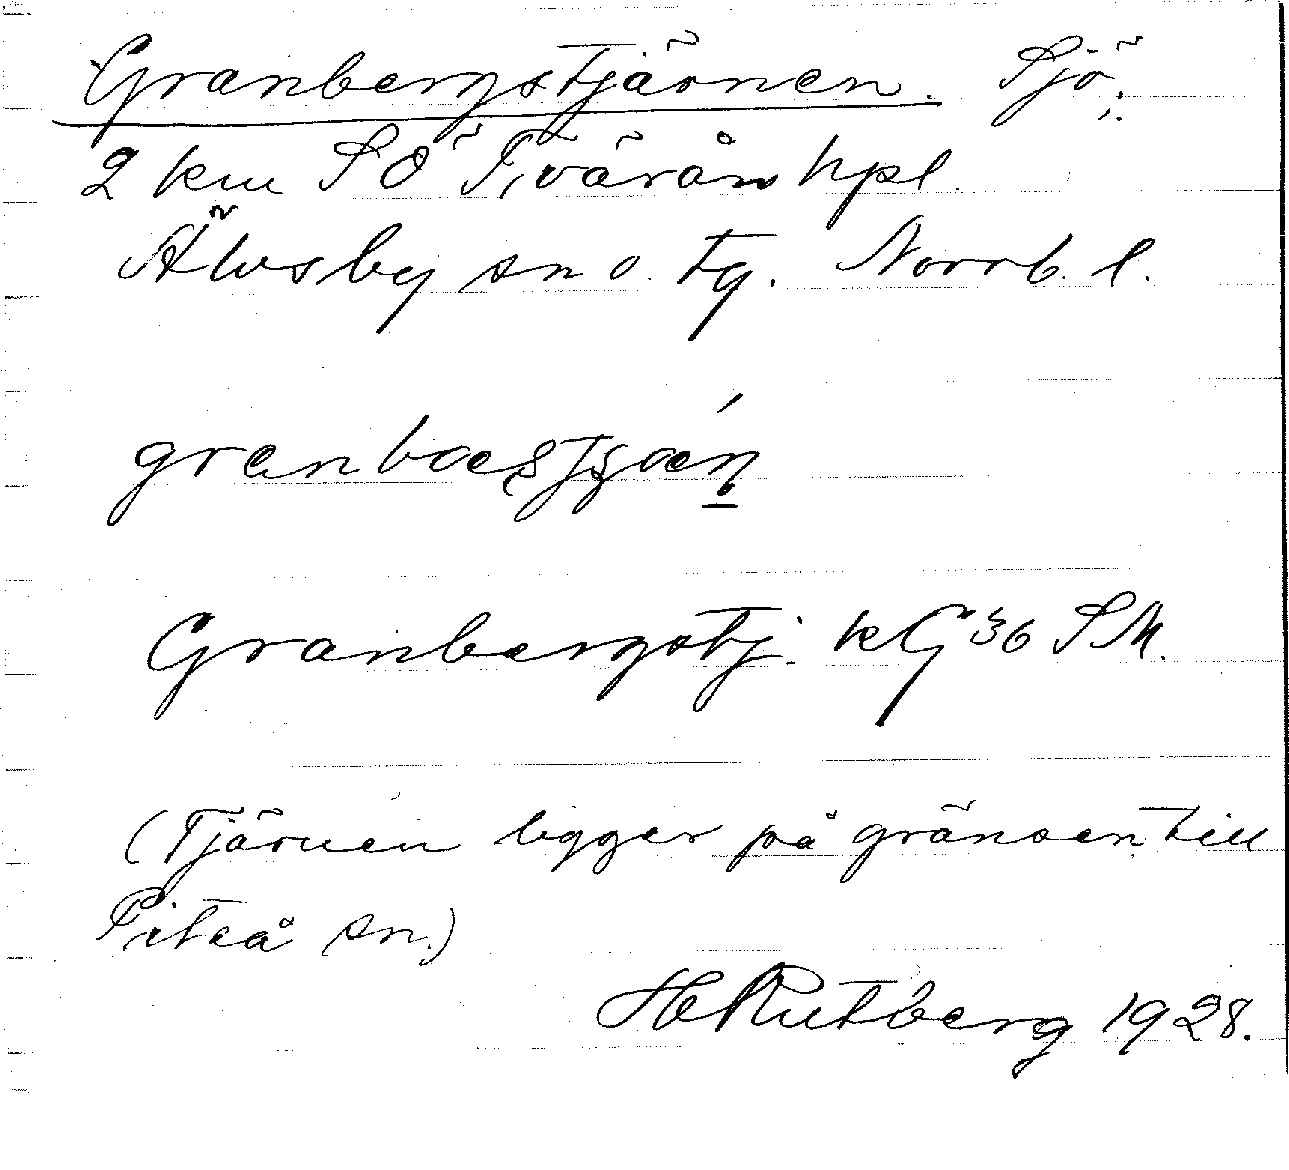 Granbergstjärnen. Sjö;
2 km SÖ Tvärån hpl
Älvsby sn o. tg. Norrb. l.
Granbergstj. kG 36 SM.
(Tjärnen ligger på gränsen till
Piteå sn.)
H Rutberg 1928.